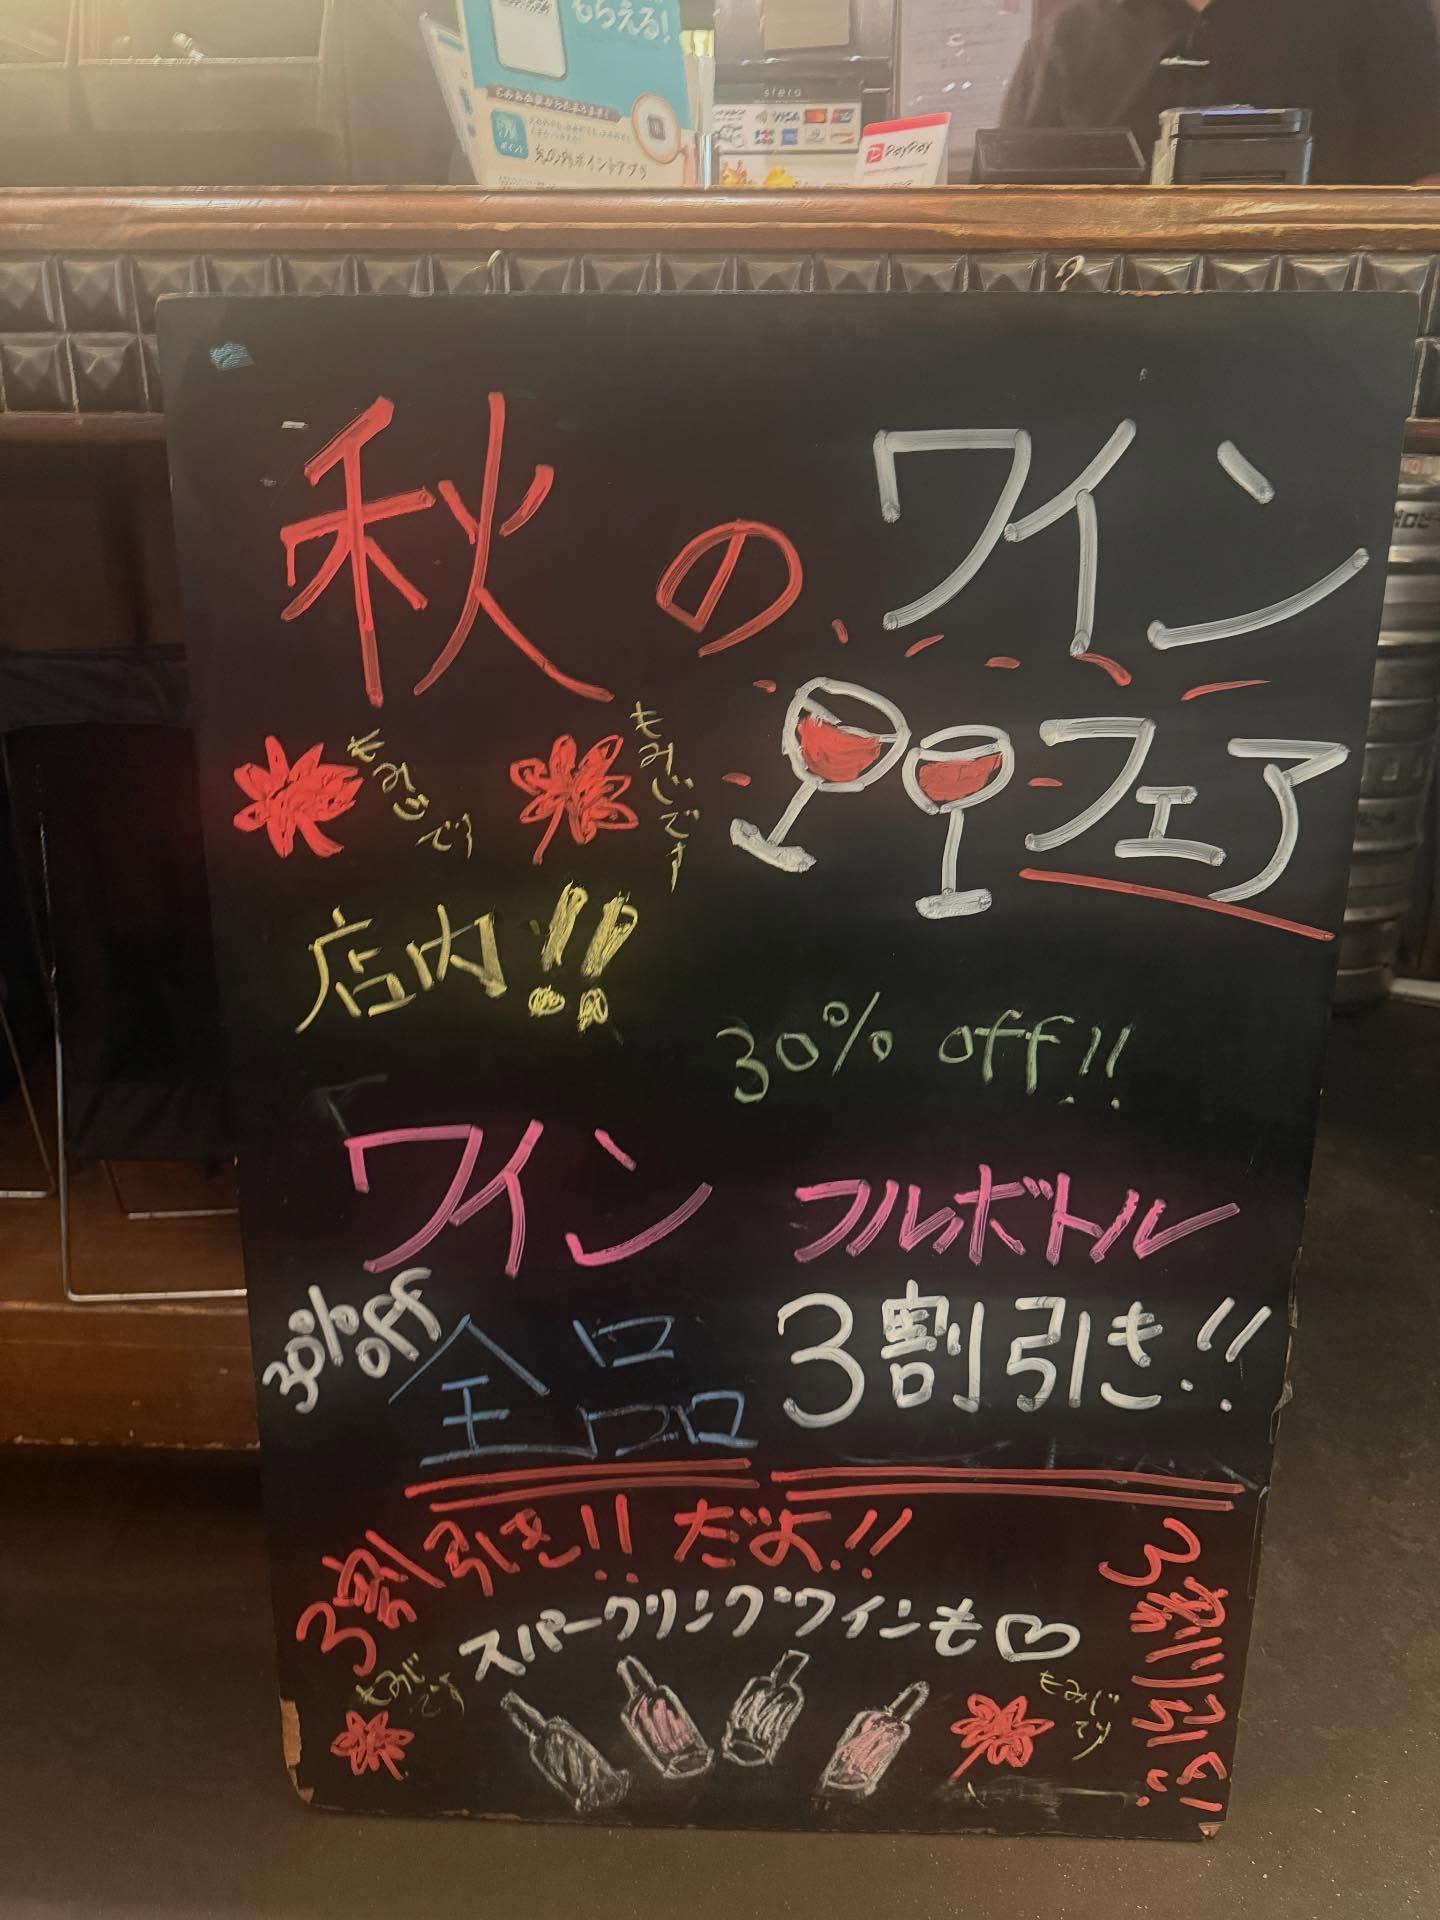 もらえる!
stera
VISA
JCB
PayPay
ポイント
秋のワイン
フェア
もみじです
もみじです
店内!!
30% off!!
ワイン フルボトル
30%off
全品 3割引き!!
3割引き!! だよ!!
スパークリングワインも
もみじです
もみじです
3割引き!!